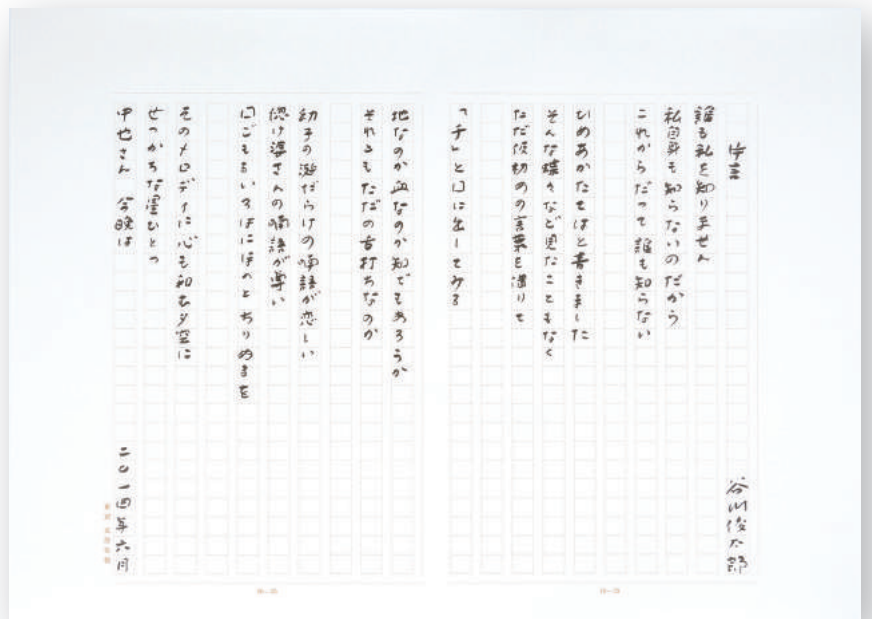 片言
谷川俊太郎
誰も私を知りません
私自身も知らないのだから
これからだって誰も知らない
ひめあかたてはと書きました
そんな蝶々など見たこともなく
ただ仮初めの言葉を借りて
「チ」と口に出してみる
地なのか血なのか知でもあろうか
それともただの舌打ちなのか
幼子の涎だらけの喃語が恋しい
惚け婆さんの喃語が尊い
口ごもるいろはにほへとちりぬるを
そのメロディに心も和む夕空に
せっかちな星ひとつ
中也さん 今晩は
二〇一四年六月